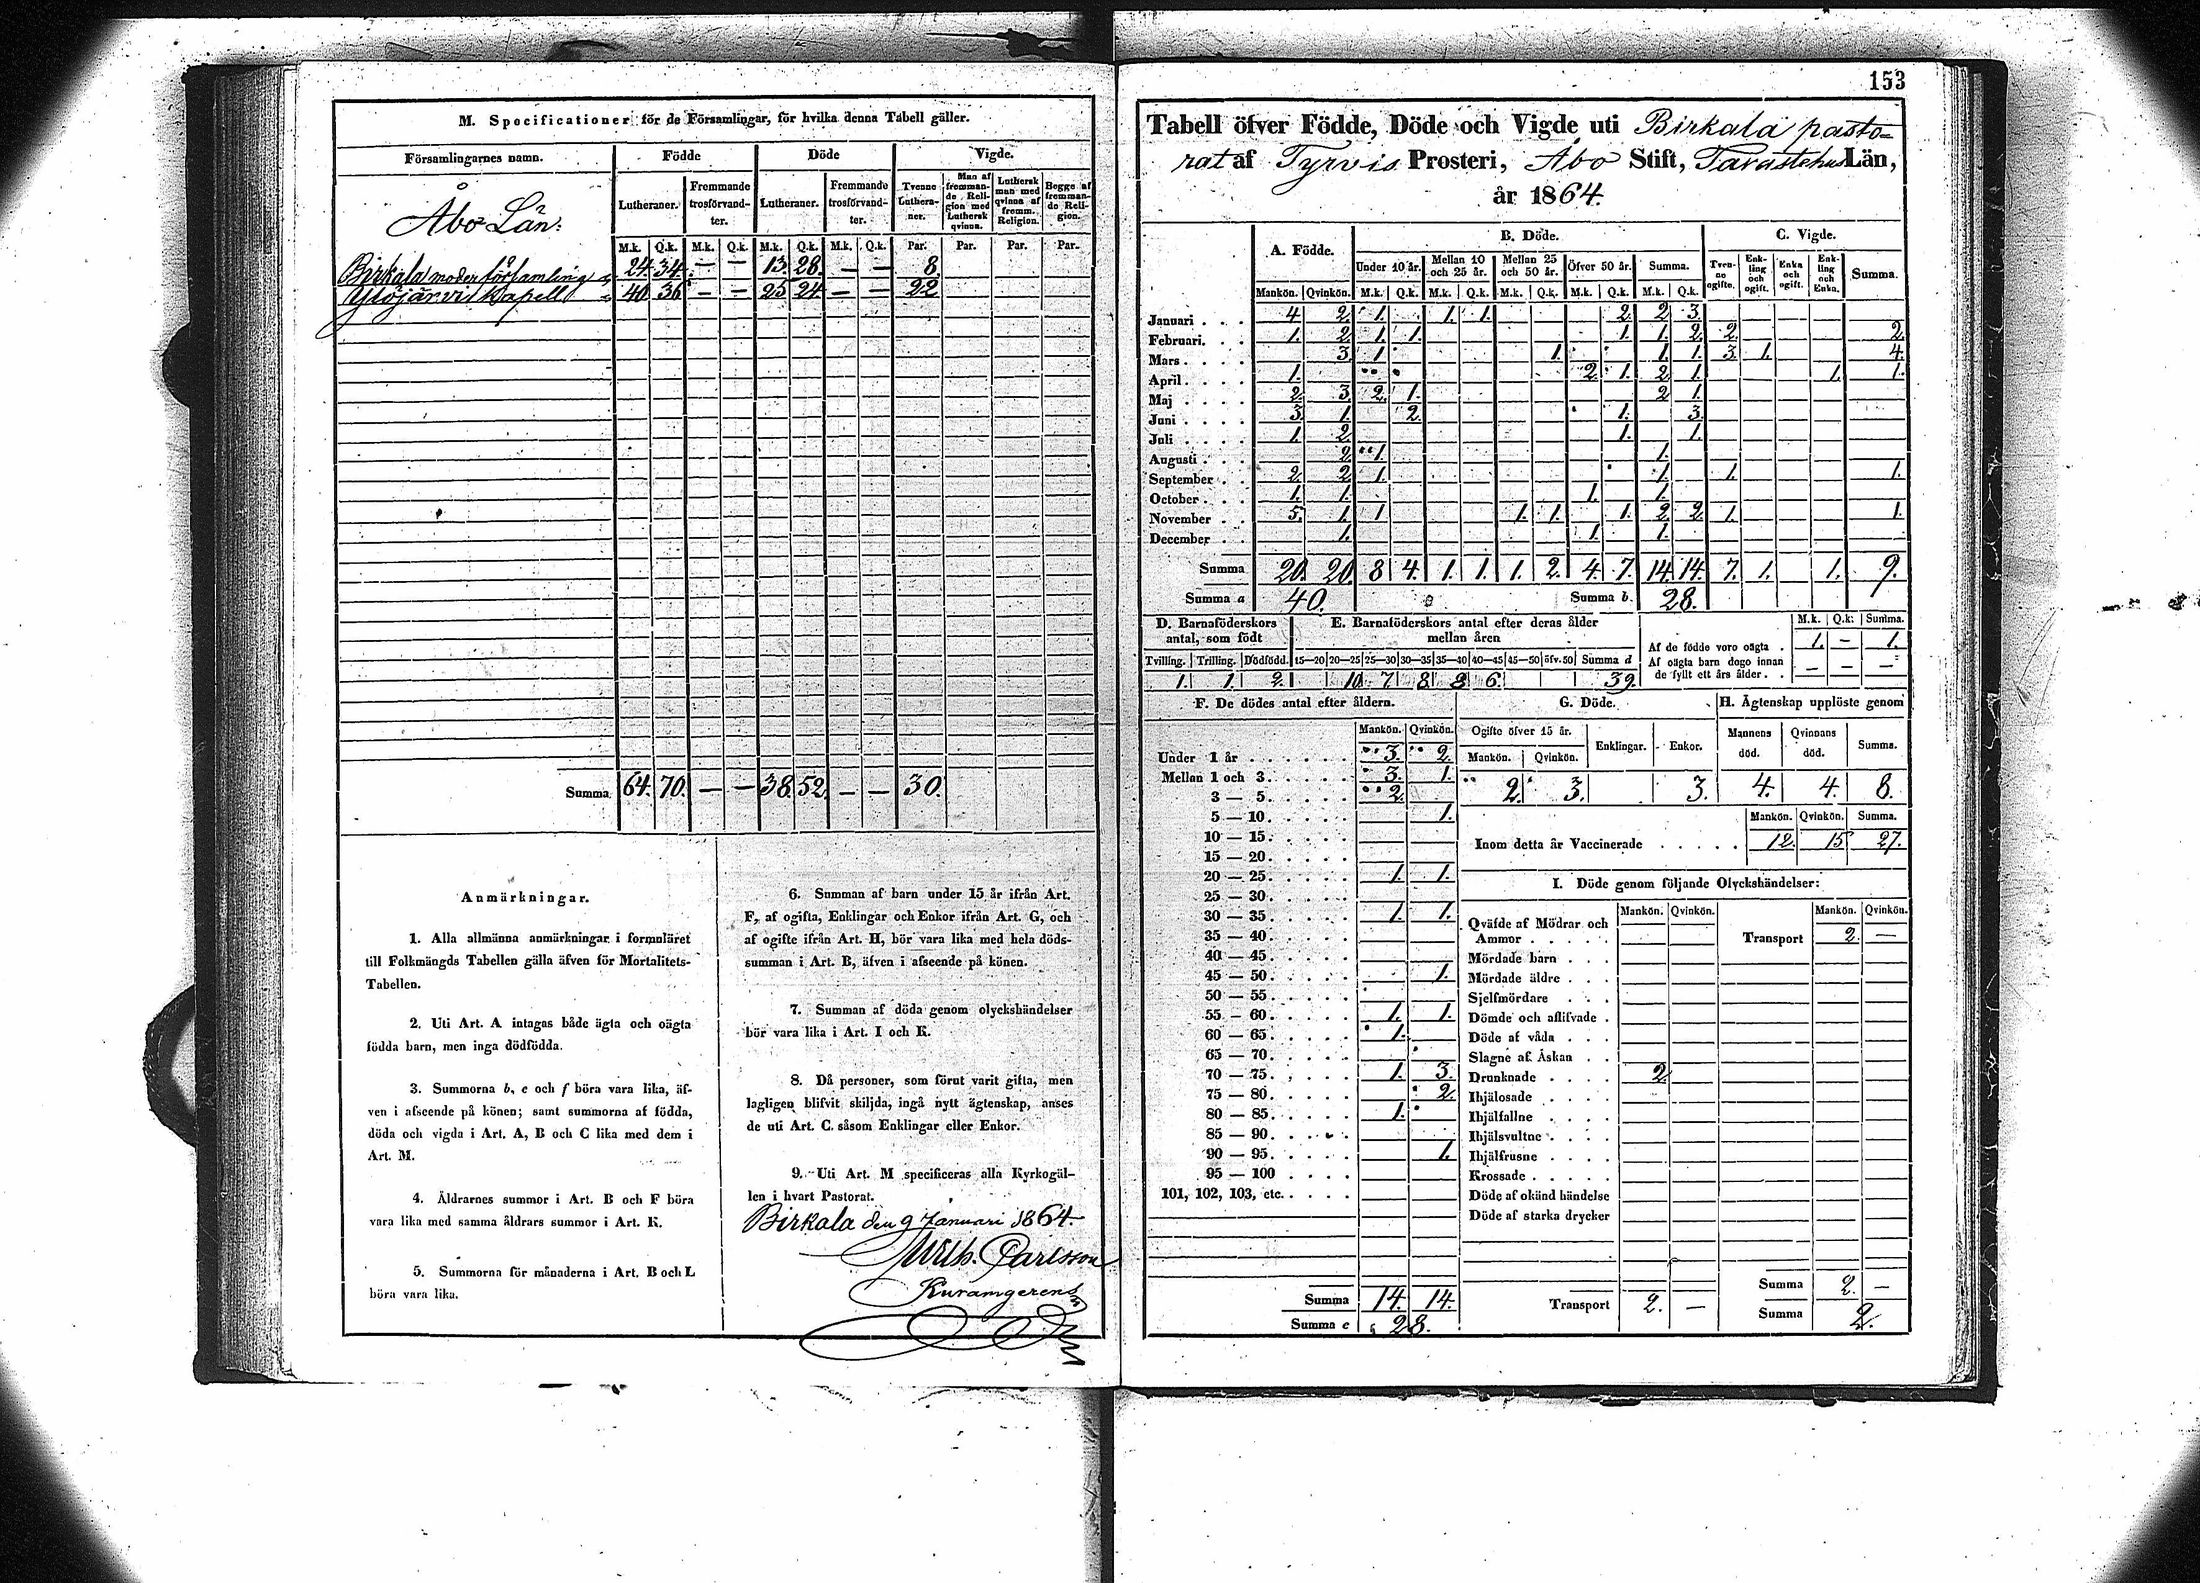 M. Specificationer för de Församlingar, för hvilka denna Tabell gäller.
Församlingarnes namn. Födde Döde Vigde.
Lutheraner. Fremmande trosförvandter. Lutheraner. Fremmande trosförvandter. Tvenne Lutheraner. Man af fremmande Religion med Luthersk qvinna. Luthersk man med qvinna af fremm. Religion. Begge af fremmande Religion.
M.k. Q.k. M.k. Q.k. M.k. Q.k. M.k. Q.k. Par. Par. Par. Par.
Åbo Län:
Birkala moderförsamling 24. 34. — — 13. 28. — — 8.
Ylöjärvi Kapell 40. 36. — — 25. 24. — — 22.
Summa 64. 70. — — 38. 52. — — 30.
Anmärkningar.
1. Alla allmänna anmärkningar i formuläret
till Folkmängds Tabellen gälla äfven för Mortalitets-
Tabellen.
2. Uti Art. A intagas både ägta och oägta
födda barn, men inga dödfödda.
3. Summorna b, c och f böra vara lika, äf-
ven i afseende på könen; samt summorna af födda,
döda och vigda i Art. A, B och C lika med dem i
Art. M.
4. Åldrarnes summor i Art. B och F böra
vara lika med samma åldrars summor i Art. K.
5. Summorna för månaderna i Art. B och L
böra vara lika.
6. Summan af barn under 15 år ifrån Art.
F, af ogifta, Enklingar och Enkor ifrån Art. G, och
af ogifte ifrån Art. H, bör vara lika med hela döds-
summan i Art. B, äfven i afseende på könen.
7. Summan af döda genom olyckshändelser
bör vara lika i Art. I och K.
8. Då personer, som förut varit gifta, men
lagligen blifvit skiljda, ingå nytt ägtenskap, anses
de uti Art. C. såsom Enklingar eller Enkor.
9. Uti Art. M specificeras alla Kyrkogäl-
len i hvart Pastorat.
Birkala den 9 Januari 1864.
Wilh. Carlsson
153
Tabell öfver Födde, Döde och Vigde uti Birkala pasto-
rat af Tyrvis Prosteri, Åbo Stift, Tavastehus Län,
år 1864.
A. Födde. B. Döde. C. Vigde.
Under 10 år. Mellan 10 och 25 år. Mellan 25 och 50 år. Öfver 50 år. Summa. Tvenne ogifte. Enkling och ogift. Enka och ogift. Enkling och Enka. Summa.
Mankön. Qvinkön. M.k. Q.k. M.k. Q.k. M.k. Q.k. M.k. Q.k. M.k. Q.k.
Januari 4 2. 1. 1. 1. 2. 2. 3.
Februari. 1. 2. 1. 1. 1. 1. 2. 2. 2.
Mars 3. 1. 1. 1. 1. 3. 1. 4.
April 1. 2. 1. 2. 1. 1. 1.
Maj 2. 3. 2. 1. 2. 1.
Juni 3. 1. 2. 1. 3.
Juli 1. 2. 1. 1.
Augusti 2. 1. 1.
September 2. 2. 1. 1. 1. 1.
October 1. 1. 1. 1.
November 5. 1. 1 1. 1. 1. 2. 2. 1. 1.
December 1. 1. 1.
Summa 20. 20. 8 4. 1. 1. 1. 2. 4. 7. 14. 14. 7. 1. 1. 9.
Summa a 40. Summa b. 28.
D. Barnaföderskors antal, som födt
E. Barnaföderskors antal efter deras ålder mellan åren
M.k. Q.k. Summa.
Af de födde voro oägta 1. — 1.
Af oägta barn dogo innan de fyllt ett års ålder. — — —
Tvilling. Trilling. Dödfödd. 15—20 20—25 25—30 30—35 35—40 40—45 45—50 öfv. 50 Summa d
1. 1. 2. 10. 7. 8. 8. 6. 39.
F. De dödes antal efter åldern.
Mankön. Qvinkön.
Under 1 år 3. 2.
Mellan 1 och 3. 3. 1.
3 — 5. 2.
5 — 10. 1.
10 — 15.
15 — 20.
20 — 25. 1. 1.
25 — 30.
30 — 35. 1. 1.
35 — 40.
40 — 45.
45 — 50. 1.
50 — 55.
55 — 60. 1. 1.
60 — 65. 1.
65 — 70.
70 — 75. 1. 3.
75 — 80. 2.
80 — 85. 1.
85 — 90.
90 — 95. 1.
95 — 100
101, 102, 103, etc.
Summa 14. 14.
Summa c 28.
G. Döde.
Ogifte öfver 15 år. Enklingar. Enkor.
Mankön. Qvinkön.
2. 3. 3.
H. Ägtenskap upplöste genom
Mannens död. Qvinnans död. Summa.
4. 4. 8.
Mankön. Qvinkön. Summa.
Inom detta år Vaccinerade 12. 15 27.
I. Döde genom följande Olyckshändelser:
Mankön. Qvinkön. Mankön. Qvinkön.
Qväfde af Mödrar och
Ammor
Transport 2. —
Mördade barn
Mördade äldre
Sjelfmördare
Dömde och aflifvade
Döde af våda
Slagne af Åskan
Drunknade 2.
Ihjälosade
Ihjälfallne
Ihjälsvultne
Ihjälfrusne
Krossade
Döde af okänd händelse
Döde af starka drycker
Transport 2. —
Summa 2. —
Summa 2.